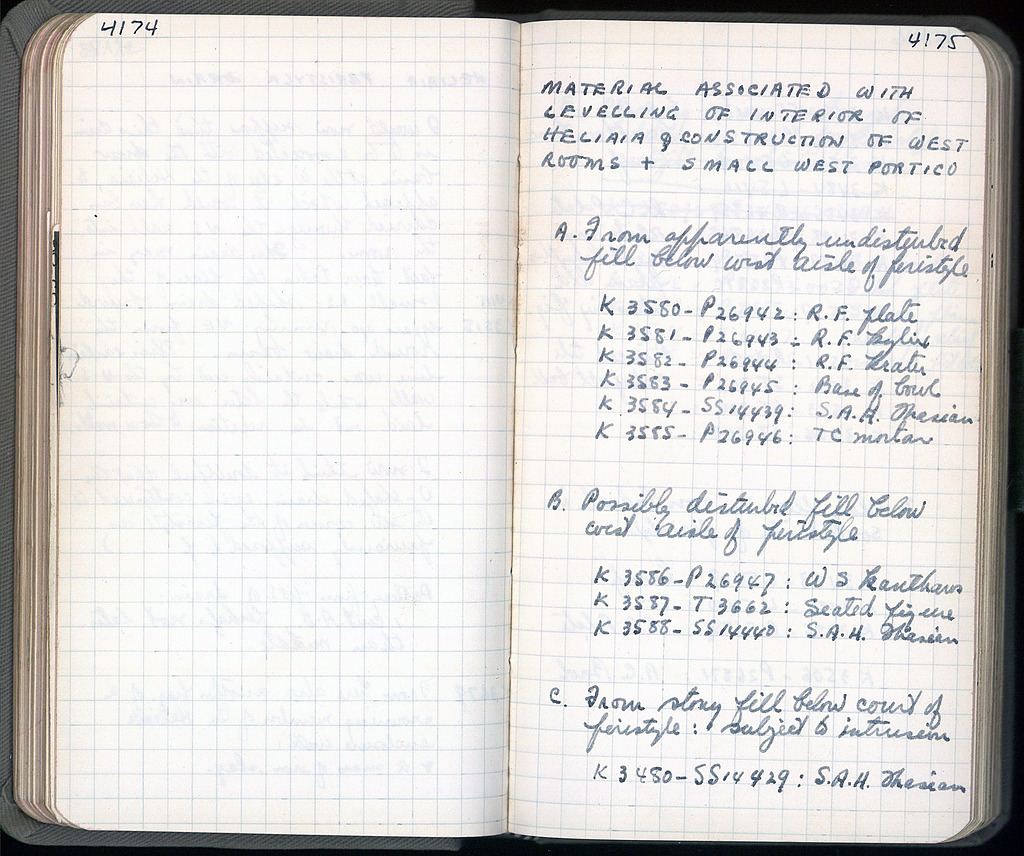 4174
4175
MATERIAL ASSOCIATED WITH
LEVELLING OF INTERIOR OF
HELIAIA & CONSTRUCTION OF WEST
ROOMS + SMALL WEST PORTICO
A. From apparently undisturbed
fill below west aisle of peristyle
K 3580 - P26942 : R.F. plate
K 3581 - P26943 : R.F. kylix
K 3582 - P26944 : R.F. krater
K 3583 - P26945 : Base of bowl
K 3584 - SS14439 : S.A.H. Thasian
K 3585 - P26946 : TC mortar
B. Possibly disturbed fill below
west aisle of peristyle
K 3586 - P26947 : W S kantharos
K 3587 - T 3662 : Seated figure
K 3588 - SS14440 : S.A.H. Thasian
C. From stony fill below court of
peristyle : subject to intrusion
K 3480 - SS14429 : S.A.H. Thasian